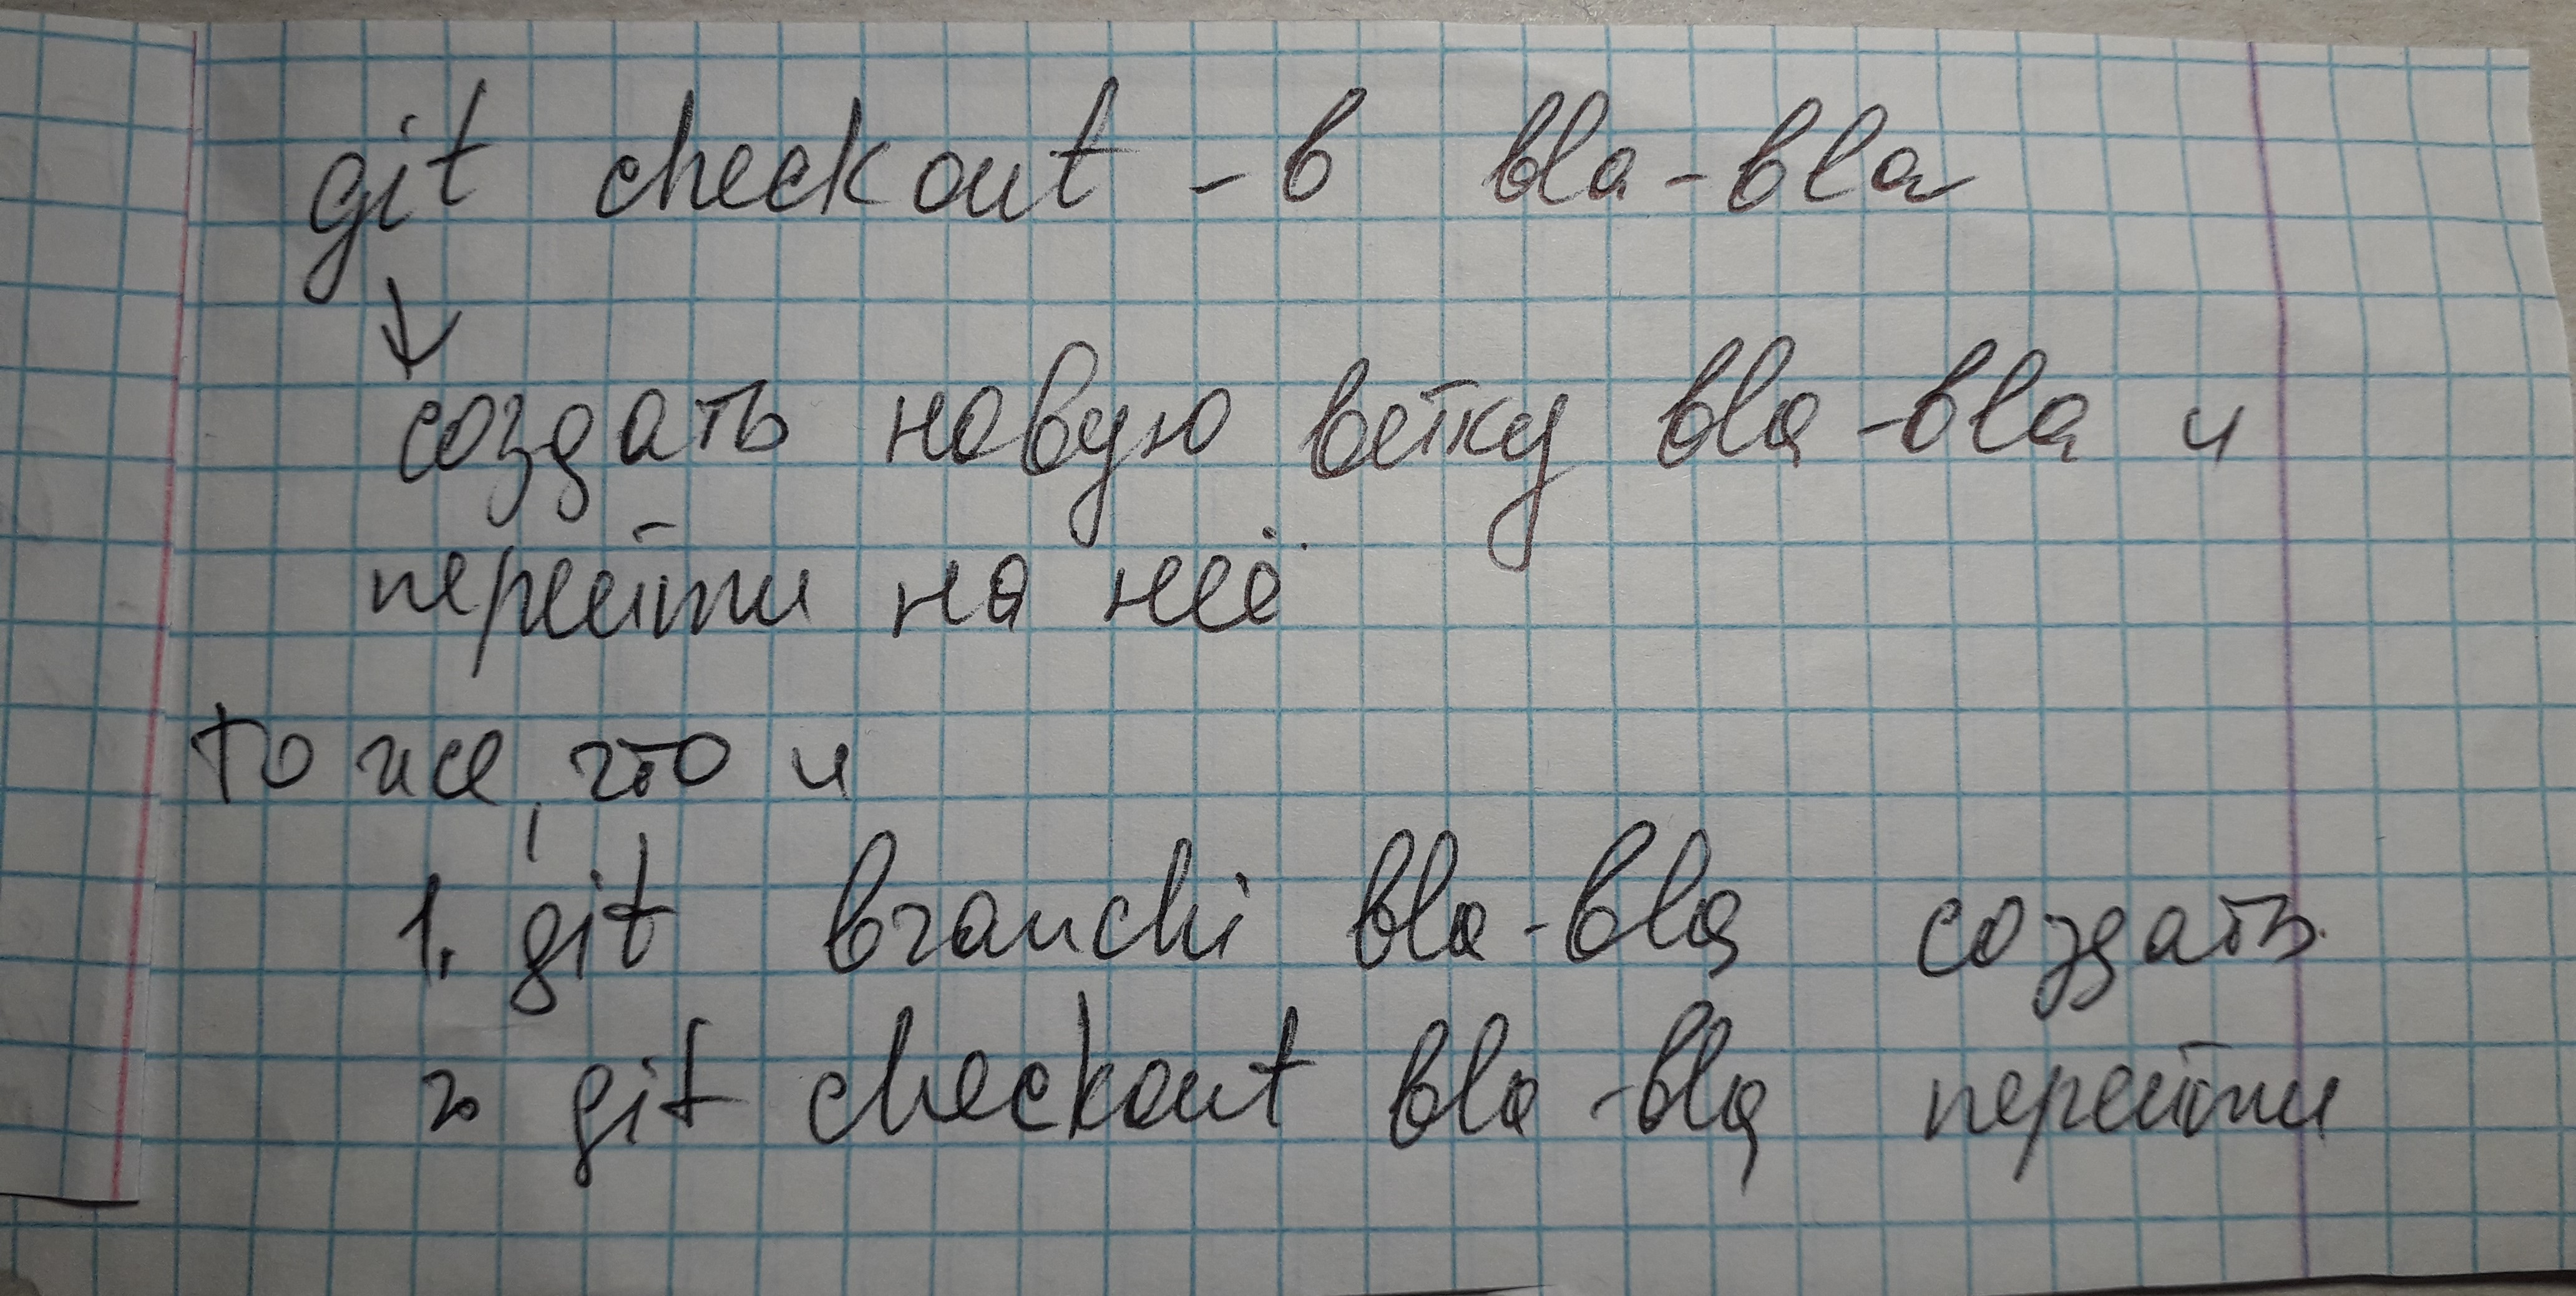 git checkout -b bla-bla
создать новую ветку bla-bla и
перейти на неё
то же, что и
1. git branchi bla-bla создать
2. git checkout bla-bla перейти